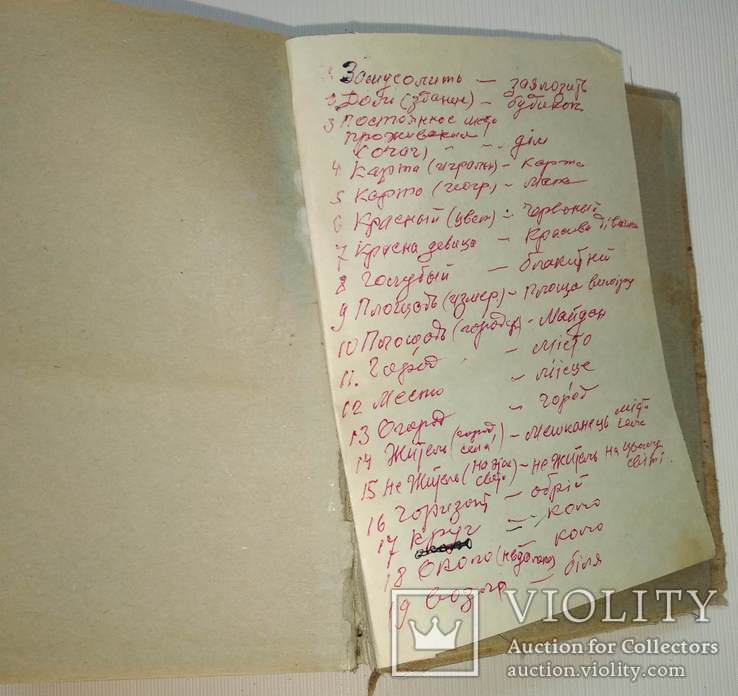 1 Замусолить — заялозить
2 Дом (здание) — будинок
3 Постоянное место
проживания
(очаг) — дім
4 Карта (игральн) — карта
5 Карта (геогр) — мапа
6 Красный (цвет) — червоний
7 Красна девица — красива дівчина
8 Голубый — блакитний
9 Площадь (измер) — площа виміру
10 Площадь (городск) — Майдан
11. Город — місто
12 Место — місце
13 Огород — город
14 Житель (город, села) — мешканець міст села
15 не житель (на этом свете) — не житель на цьому світі.
16 Горизонт — обрій
17 круг — коло
18 около (недалеко) — коло
19 возле — біля
VIOLITY
Auction for Collectors
auction.violity.com